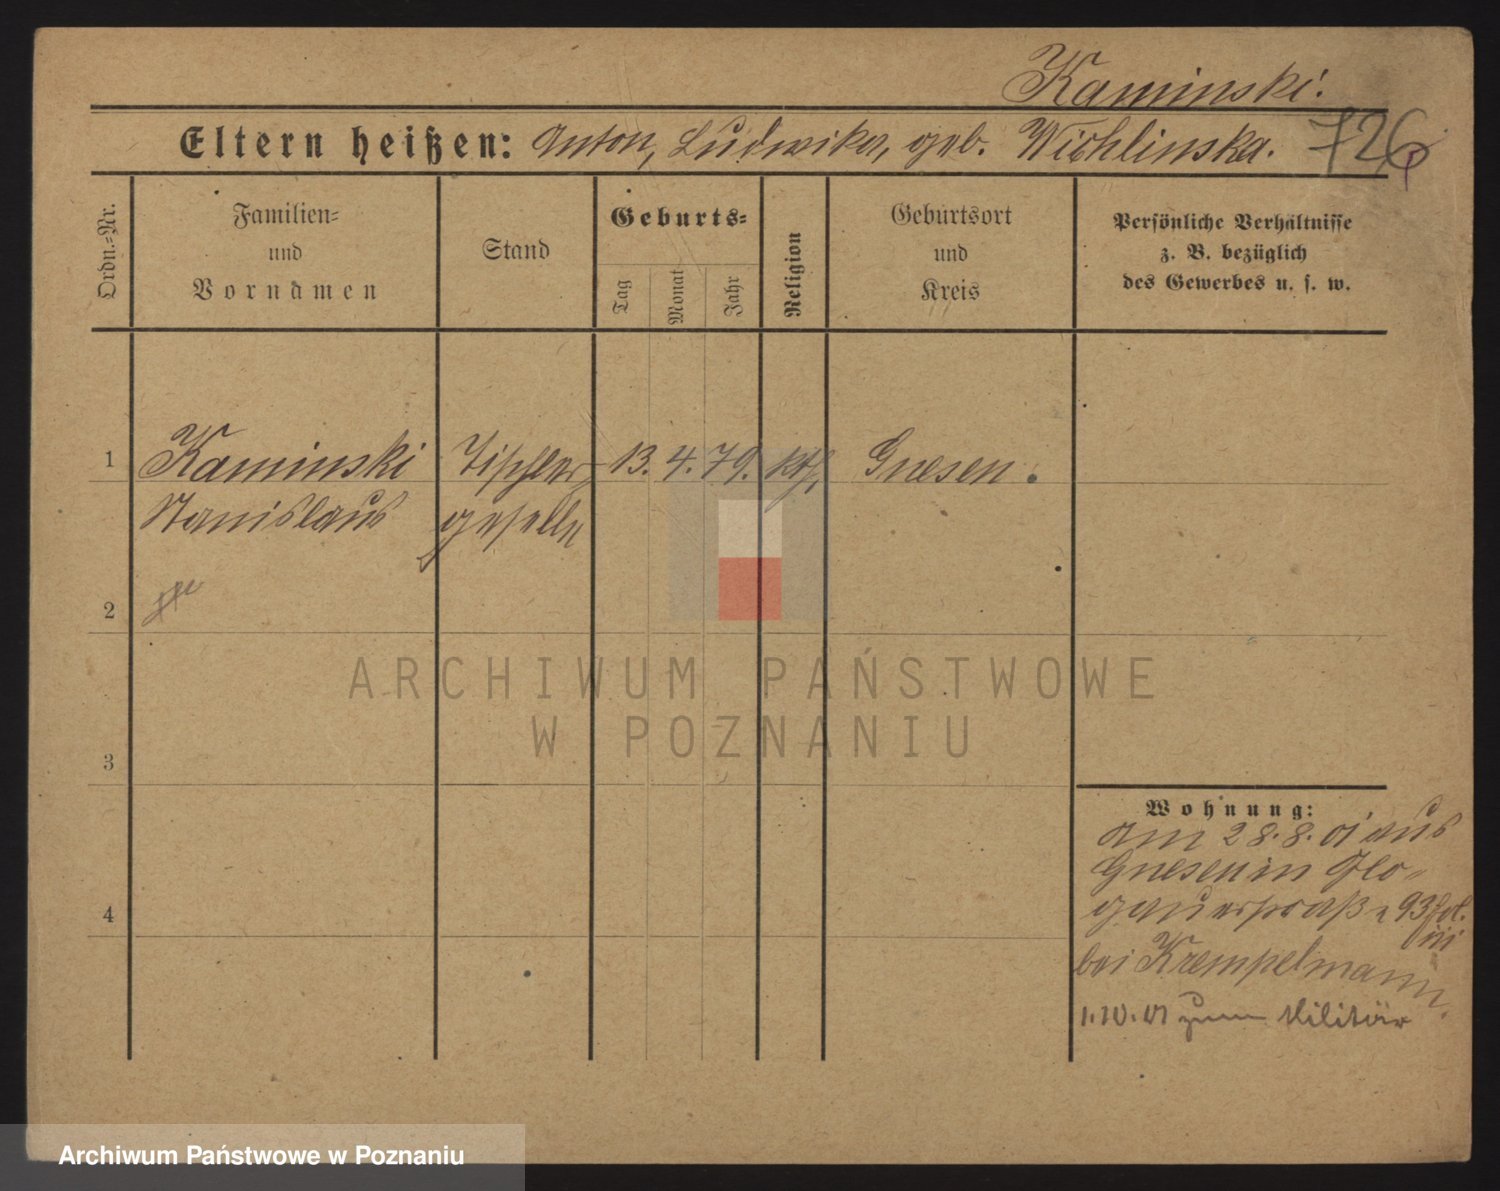 Kaminski.
Eltern heißen: Anton, Ludwika, geb. Wichlinska. 726
Ordn.-Nr.
Familien-
und
Vornamen
Stand
Geburts-
Tag
Monat
Jahr
Religion
Geburtsort
und
Kreis
Persönliche Verhältnisse
z. B. bezüglich
des Gewerbes u. s. w.
1 Kaminski Tischler- 13. 4. 79. kth. Gnesen.
Stanislaus geselle
2
3
4
Wohnung:
am 28.8.01 aus
Gnesen in Glo-
gauerstraß 93
bei Krempelmann.
1.10.01 zum Militär
ARCHIWUM PAŃSTWOWE
W POZNANIU
Archiwum Państwowe w Poznaniu